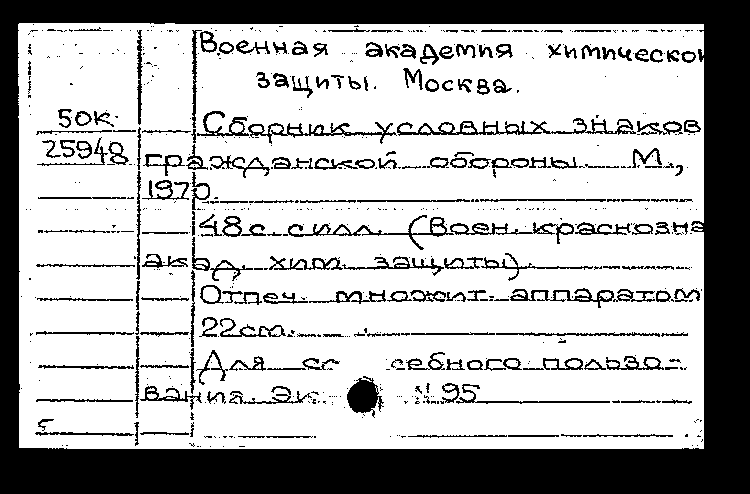 Военная академия химической
защиты. Москва.
50к Сборник условных знаков
25948 гражданской обороны. М.,
1970.
48с. силл. (Воен. краснозна
акад. хим. защиты).
Отпеч. множит. аппаратом
22см.
Для сс себного пользо-
вания. Эк. N 95
5